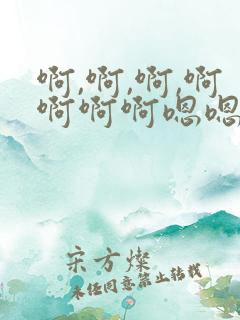 啊,啊,啊,啊
啊啊啊嗯嗯
宋方燦
未经同意禁止转载